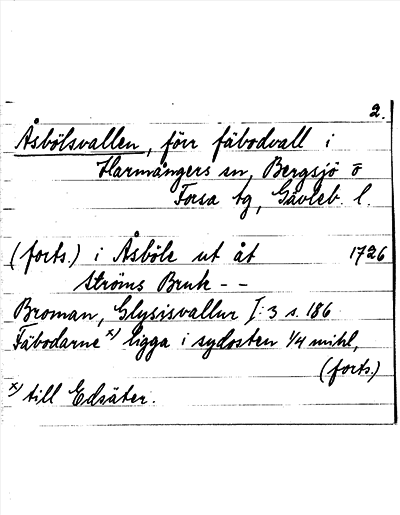 2.
Åsbölsvallen, förr fäbodvall i
Harmångers sn, Bergsjö o
Forsa tg, Gävleb. l.
(forts.) i Åsböle ut åt 1726
Ströms Bruk - -
Broman, Glysisvallur I:3 s. 186
Fäbodarne x) ligga i sydosten 1/4 mihl,
(forts.)
x) till Edsäter.